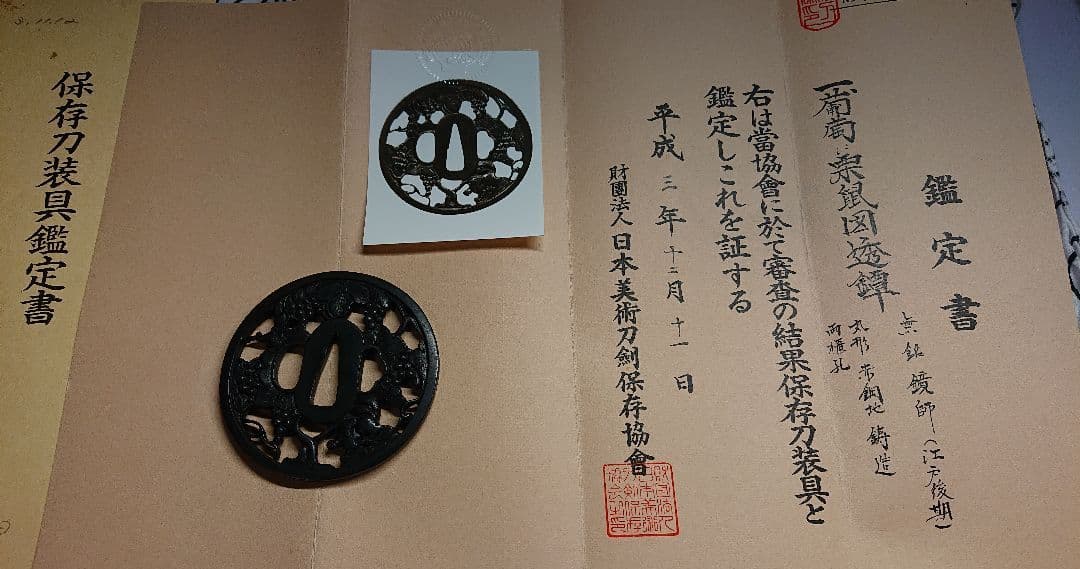 鑑定書
一、葡萄に栗鼠図透鐔
無銘 鏡師(江戸後期)
丸形 赤銅地 鋳造
両櫃孔
右は當協會に於て審査の結果保存刀装具と
鑑定しこれを証する
平成三年十二月十一日
財團法人日本美術刀劍保存協會
保存刀装具鑑定書
3.11.12